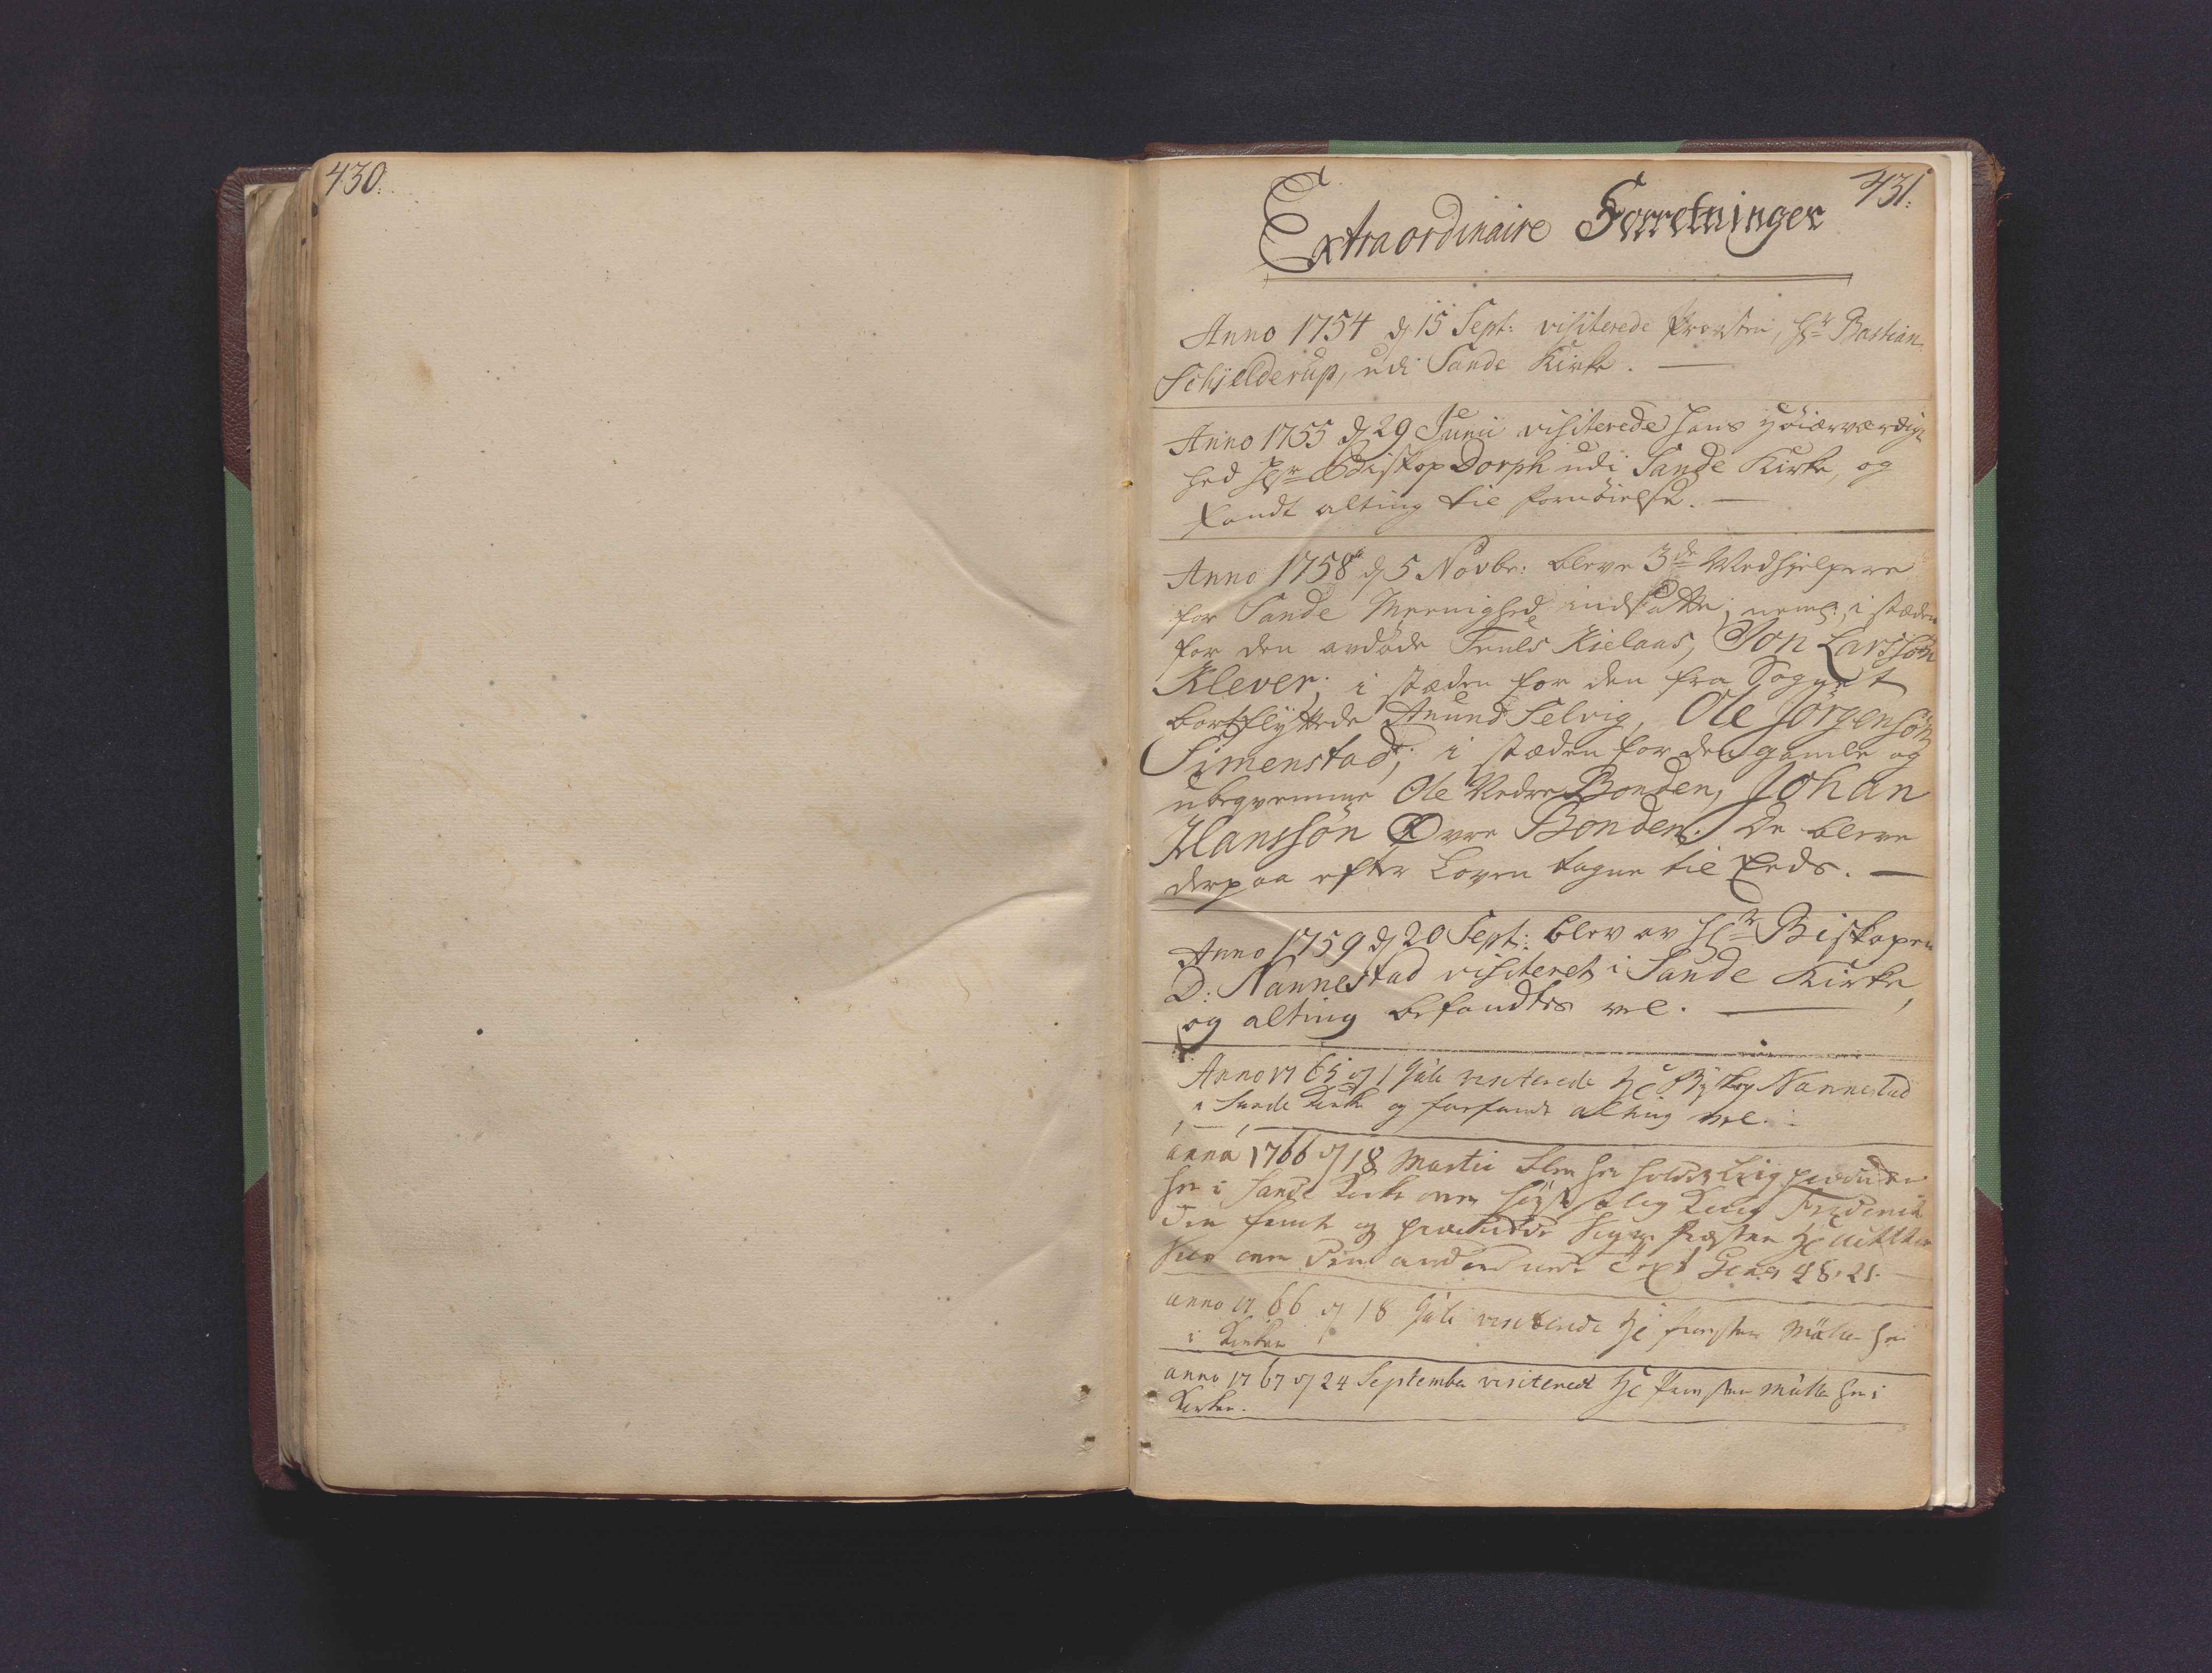 430.
431.
Extraordinaire Forretninger
Anno 1754 d 15 Sept: visiterede Provsten, Hr Bastian
Schjelderup, udi Sande Kirke.
Anno 1755 d 29 Junii visiterede hans Höiærværdig
hed Hr Biskop Dorph udi Sande Kirke, og
fandt alting til fornöielse.
Anno 1758 d 5 Novbr: bleve 3de Medhielpere
for Sande Meenighed indsatte, neml: i stæden
for den avdöde Truls Kielaas, Jon Larssön
Klever; i stæden for den fra Sognet
bortflyttede Anund Selvig, Ole Jörgensön
Simenstad; i stæden for den gamle og
ubeqvemme Ole Nedre Bonden, Johan
Hanssön Øvre Bonden. De bleve
derpaa efter Loven tagne til Eeds.
Anno 1759 d 20 Sept: blev av Hr Biskopen
D: Nannestad visiteret i Sande Kirke,
og alting befandtes vel.
Anno 1765 d 1 Juli visiterede Hr Biskop Nannestad
i Sande Kirke og forfandt alting vel.
anno 1766 d 18 Martii blev her holdt Liigprædiken
her i Sande Kirke over höystsalig Kong Friderich
den femte og prædikede Sogne Præsten Hr
over den anordnede Text Gen: 48, 21.
anno 1766 d 18 Juli visiterede Hr Provsten Müller her
i Kirken
anno 1767 d 24 September visiterede Hr Provsten Müller her i
Kirken.